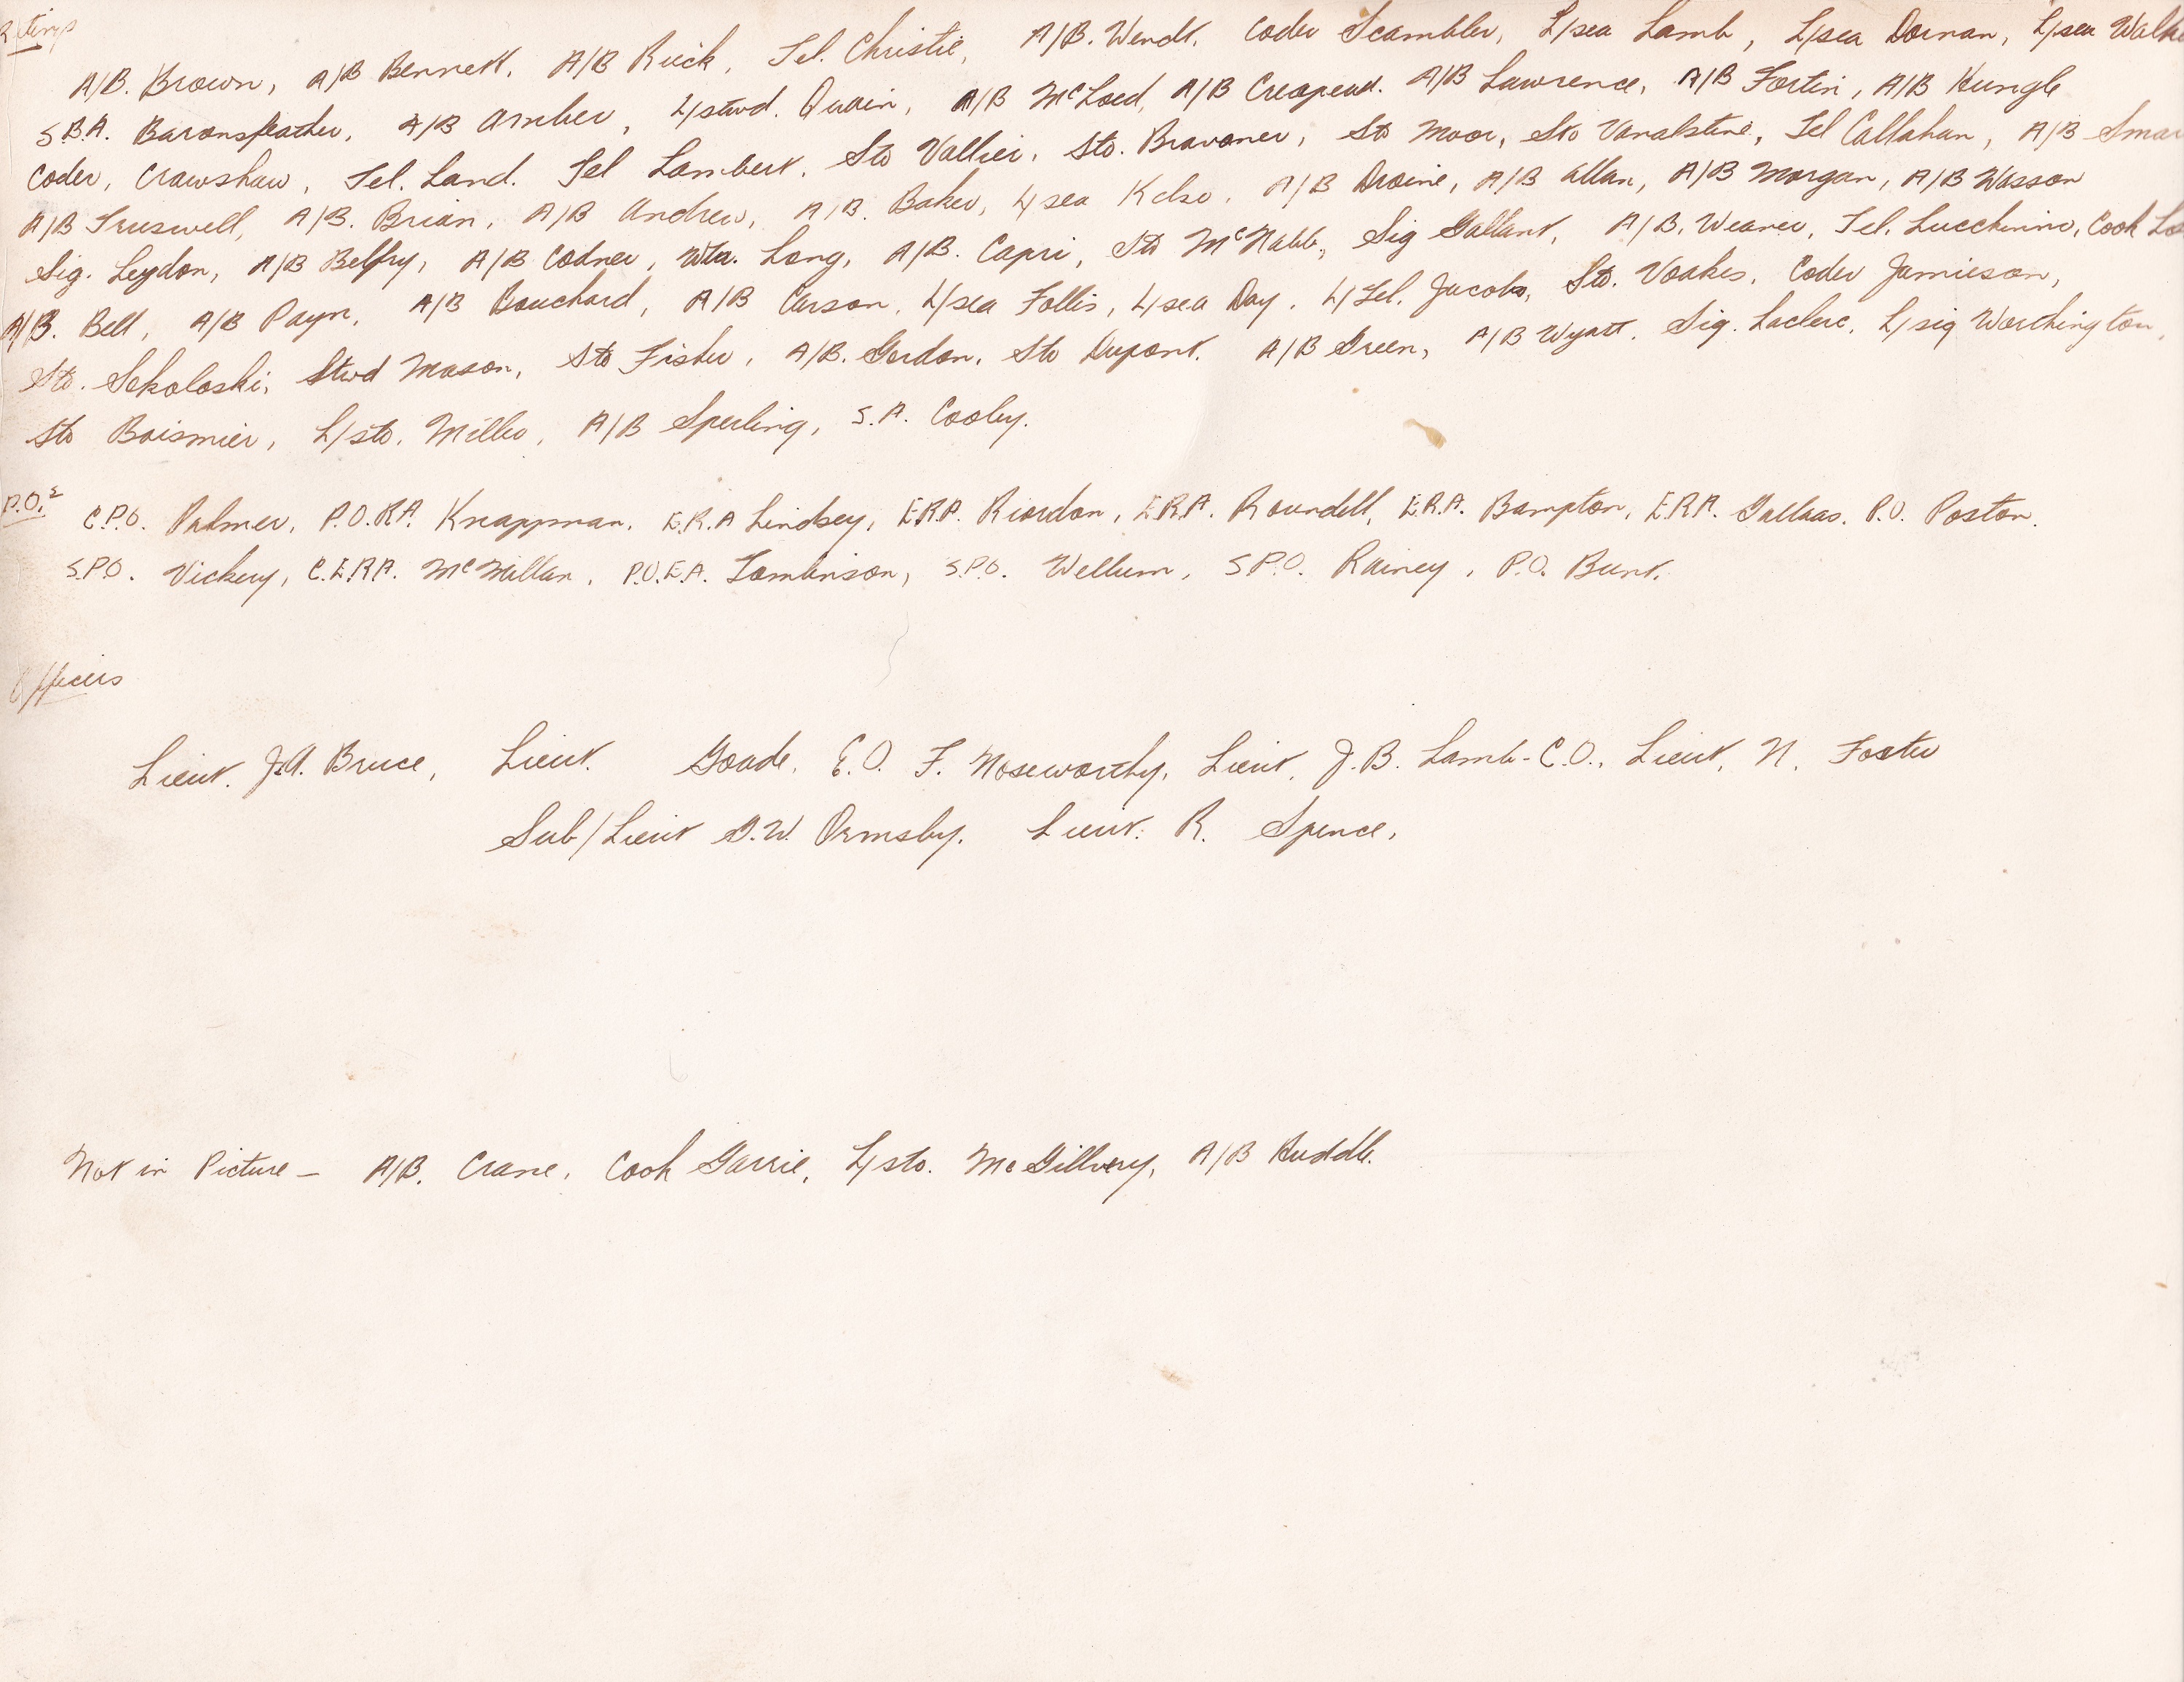 Ratings
A/B. Brown, A/B Bennett, A/B Ruck, Tel. Christie, A/B. Wendt, Coder Scambler, L/sea Lamb, L/sea Dornan, L/sea
S.B.A. Baronsfeather, A/B Amber, L/stwd. Quain, A/B McLoed, A/B Lawrence, A/B Fortin, A/B Hungle
Coder, Crawshaw, Tel. Land. Tel Lambert, Sto Vallier, Sto. Bravaner, Sto Moor, Sto Vanalstine, Tel Callahan, A/B
A/B Truswell, A/B. Brian, A/B Andrew, A/B. Baker, L/sea Kelso, A/B Droine, A/B Allan, A/B Morgan, A/B Wasson
Sig. Leydon, A/B Belfry, A/B Codner, Wtr. Long, A/B. Capri, Sto McNabb, Sig Gallant, A/B. Weaver, Tel. Lucchinino, Cook
A/B. Bell, A/B Payn, A/B Bouchard, A/B Carson, L/sea Follis, L/sea Day, L/Tel. Jacobs, Sto. Voakes, Coder Jamieson,
Sto. Sokoloski, Stwd Mason, Sto Fisher, A/B. Gordon, Sto Dupont. A/B Green, A/B Wyatt. Sig. Laclerc, L/sig Worthington,
Sto Boismier, L/sto. Miller, A/B Sperling, S.A. Cooley.
P.O.s C.P.O. Palmer, P.O.R.A. Knappman, E.R.A Lindsey, E.R.A. Riordon, E.R.A. Roundell, E.R.A. Bampton, E.R.A. Gallaas. P.O. Poston.
S.P.O. Vickery, C.E.R.A. McMillan, P.O.E.A. Tomlinson, S.P.O. Wellum, S.P.O. Rainey, P.O. Bunt.
Officers
Lieut. J.A. Bruce, Lieut. Goade, E.O. F. Noseworthy, Lieut. J.B. Lamb-C.O., Lieut. N. Foster
Sub/Lieut G.W. Ormsby. Lieut. R. Spence,
Not in Picture - A/B. Crane, Cook Garrie, L/sto. McGillvery, A/B Huddle.